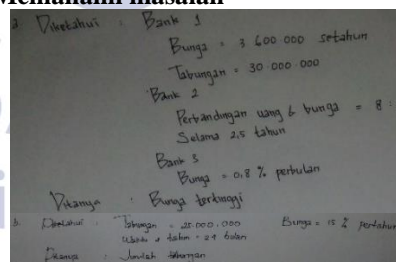 Memahami masalah
a. Diketahui : Bank 1
Bunga = 3.600.000 setahun
Tabungan = 30.000.000
Bank 2
Perbandingan uang & bunga = 8 :
Selama 2,5 tahun
Bank 3
Bunga = 0,8 % perbulan
Ditanya : Bunga tertinggi
b. Diketahui : Tabungan = 25.000.000 Bunga = 15 % pertahun
tahun = 24 bulan
Ditanya : Jumlah tabungan